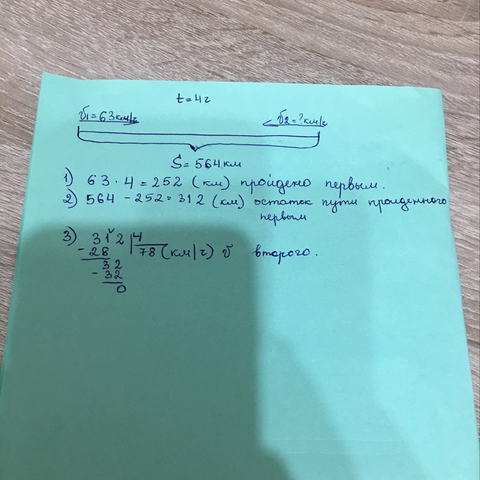 t = 4 ч
v1 = 63 км/ч v2 = ? км/ч
S = 564 км
1) 63 · 4 = 252 (км) пройдено первым.
2) 564 - 252 = 312 (км) остаток пути пройденного
первым
3) 312 | 4
- 28 78 (км/ч) v второго.
32
- 32
0